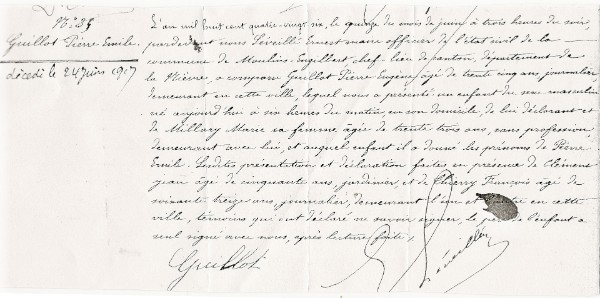 N° 35
Guillot Pierre Emile.
décédé le 24 juin 1917
L'an mil huit cent quatre-vingt six, le quinze du mois de juin à trois heures du soir,
pardevant nous Léveillé Ernest maire officier de l'état civil de la
commune de Moulins-Engilbert chef-lieu de canton, département de
la Nièvre, a comparu Guillot Pierre Eugène âgé de trente cinq ans, journalier
demeurant en cette ville, lequel nous a présenté un enfant du sexe masculin
né aujourd'hui à six heures du matin, en son domicile, de lui déclarant et
de Millary Marie sa femme âgée de trente trois ans, sans profession,
demeurant avec lui, et auquel enfant il a donné les prénoms de Pierre
Emile. Lesdites présentation et déclaration faites en présence de Clément
Jean âgé de cinquante ans, jardinier, et de Thierry François âgé de
soixante treize ans, journalier, demeurant l'un et l'autre en cette
ville, témoins qui ont déclaré ne savoir signer, le père de l'enfant a
seul signé avec nous, après lecture faite.
Guillot
Léveillé